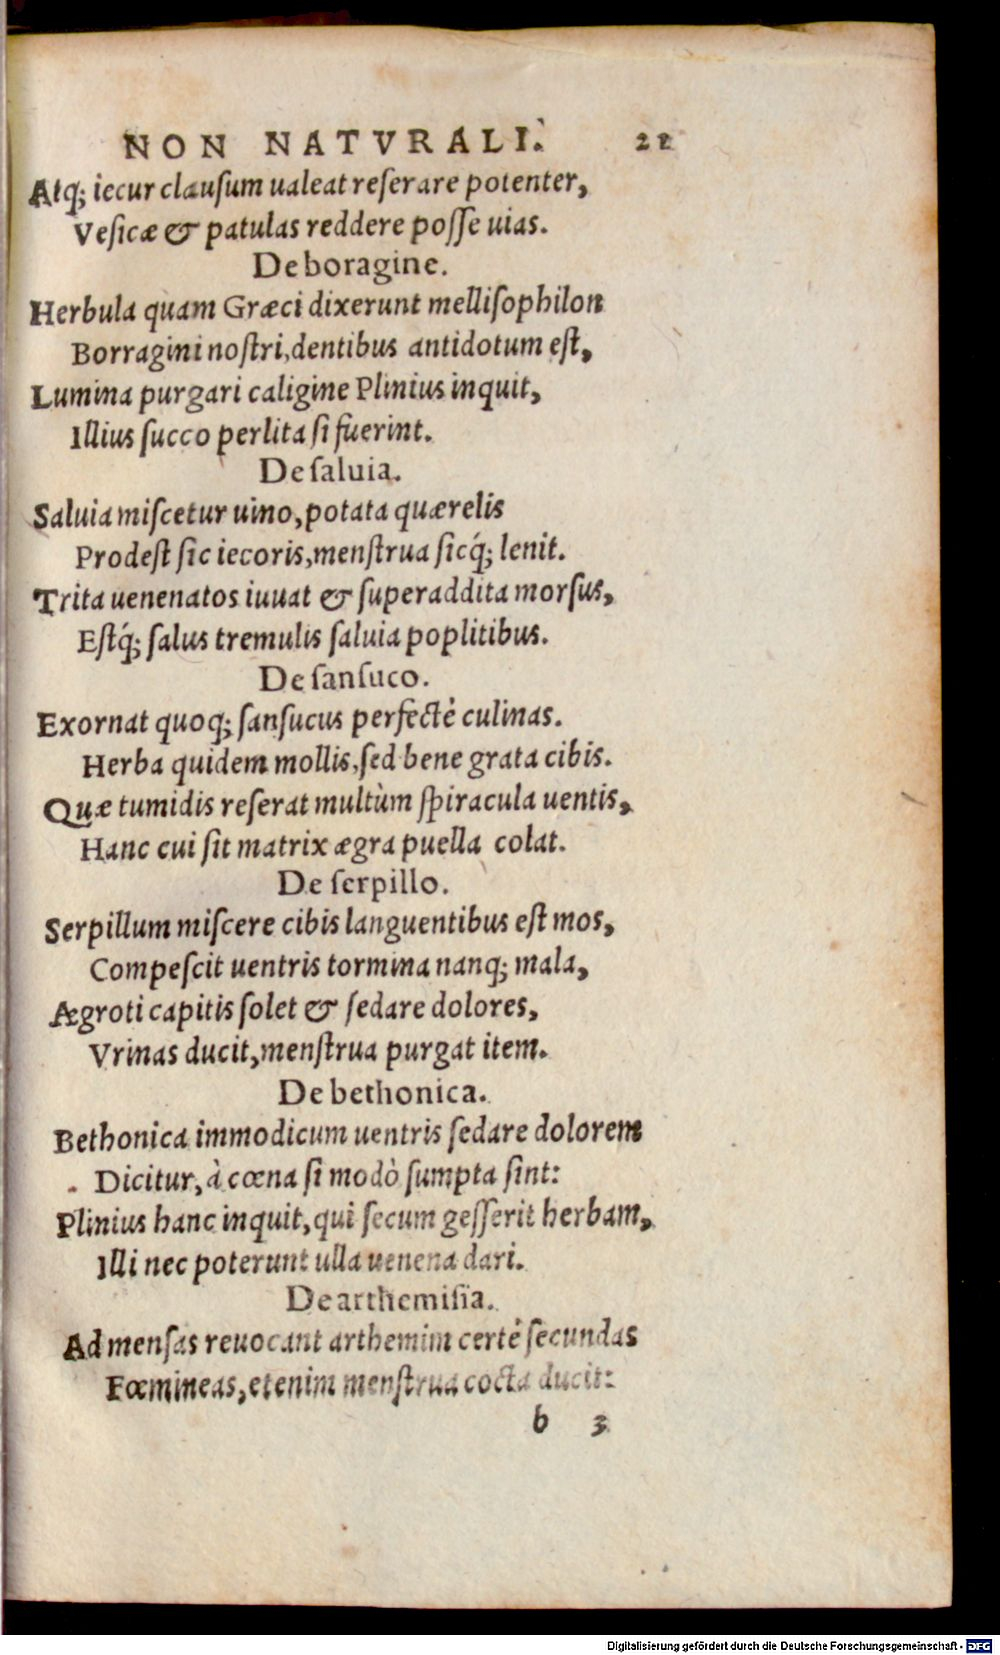 NON NATVRALI. 21
Atq; iecur clauſum ualeat reſerare potenter,
Veſicæ & patulas reddere poſſe uias.
De boragine.
Herbula quam Græci dixerunt melliſophilon
Borragini noſtri, dentibus antidotum eſt,
Lumina purgari caligine Plinius inquit,
Illius ſucco perlita ſi fuerint.
De ſaluia.
Saluia miſcetur uino, potata quærelis
Prodeſt ſic iecoris, menſtrua ſicq́; lenit.
Trita uenenatos iuuat & ſuperaddita morſus,
Eſtq́; ſalus tremulis ſaluia poplitibus.
De ſanſuco.
Exornat quoq; ſanſucus perfectè culinas.
Herba quidem mollis, ſed bene grata cibis.
Quæ tumidis reſerat multùm ſpiracula uentis,
Hanc cui ſit matrix ægra puella colat.
De ſerpillo.
Serpillum miſcere cibis languentibus eſt mos,
Compeſcit uentris tormina nanq; mala,
Ægroti capitis ſolet & ſedare dolores,
Vrinas ducit, menſtrua purgat item.
De bethonica.
Bethonica immodicum uentris ſedare dolorem
Dicitur, à cœna ſi modò ſumpta ſint:
Plinius hanc inquit, qui ſecum geſſerit herbam,
Illi nec poterunt ulla uenena dari.
De arthemiſia.
Ad menſas reuocant arthemim certè ſecundas
Fœmineas, etenim menſtrua cocta ducit:
b 3
Digitalisierung gefördert durch die Deutsche Forschungsgemeinschaft - DFG